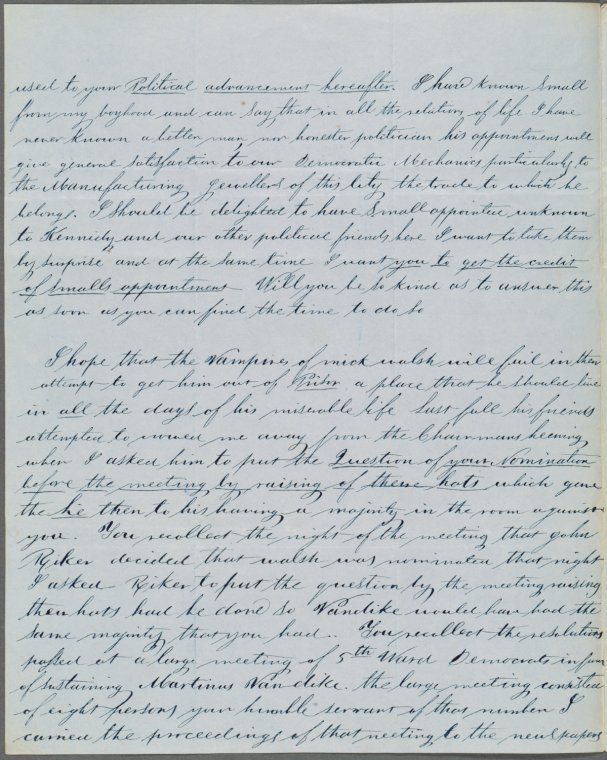 used to your Political advancement hereafter. I have known Small
from my boyhood and can say that in all the relations of life I have
never known a better man, nor honester politician his appointment will
give general satisfaction to our Democratic Mechanics particularly to
the Manufacturing Jewellers of this City the trade to which he
belongs. I should be delighted to have Small appointed unknown
to Kennidy and our other political friends here I want to take them
by surprise and at the same time I want you to get the credit
of Smalls appointment Will you be so kind as to answer this
as soon as you can find the time to do so
I hope that the Vampires of mick walsh will fail in their
attempt to get him out of Prison a place that he should live
in all the days of his miserable life Last fall his friends
attempted to crowd me away from the Chairmans hearing
when I asked him to put the Question of your Nomination
before the meeting by raising of there hats which gave
the lie then to his having a majority in the room against
you. You recollect the night of the meeting that John
Riker decided that walsh was nominated that night
I asked Riker to put the question by the meeting raising
their hats had he done so Vandike would have had the
same majority that you had. You recollect the resolutions
passed at a large meeting of 5th Ward Democrats in favor
of sustaining Martinus Vandike. the large meeting consisted
of eight persons your humble servant of that number I
carried the proceedings of that meeting to the newspapers